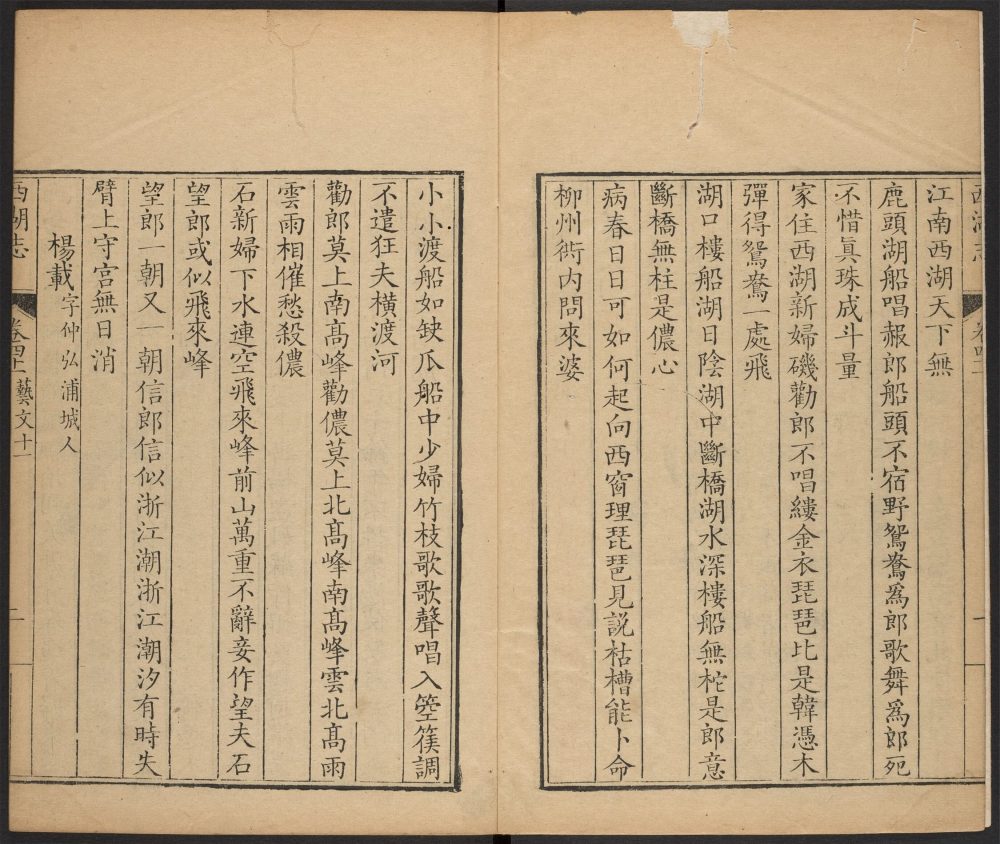 江南西湖天下無
鹿頭湖船唱赧郎船頭不宿野鴛鴦爲郎歌舞爲郎死
不惜眞珠成斗量
家住西湖新婦磯勸郎不唱縷金衣琵琶比是韓憑木
彈得鴛鴦一處飛
湖口樓船湖日陰湖中斷橋湖水深樓船無柁是郎意
斷橋無柱是儂心
病春日日可如何起向西窗理琵琶見説枯槽能卜命
柳州衖内問來婆
小小渡船如缺瓜船中少婦竹枝歌歌聲唱入箜篌調
不遣狂夫橫渡河
勸郎莫上南髙峰勸儂莫上北髙峰南髙峰雲北髙雨
雲雨相催愁殺儂
石新婦下水連空飛來峰前山萬重不辭妾作望夫石
望郎或似飛來峰
望郎一朝又一朝信郎信似浙江潮浙江潮汐有時失
臂上守宫無日消
楊載字仲弘浦城人
西湖志 卷四十一 藝文十一 二